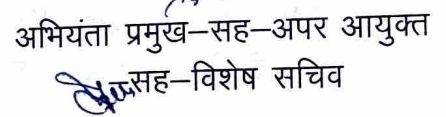 अभियंता प्रमुख–सह–अपर आयुक्त
सह–विशेष सचिव